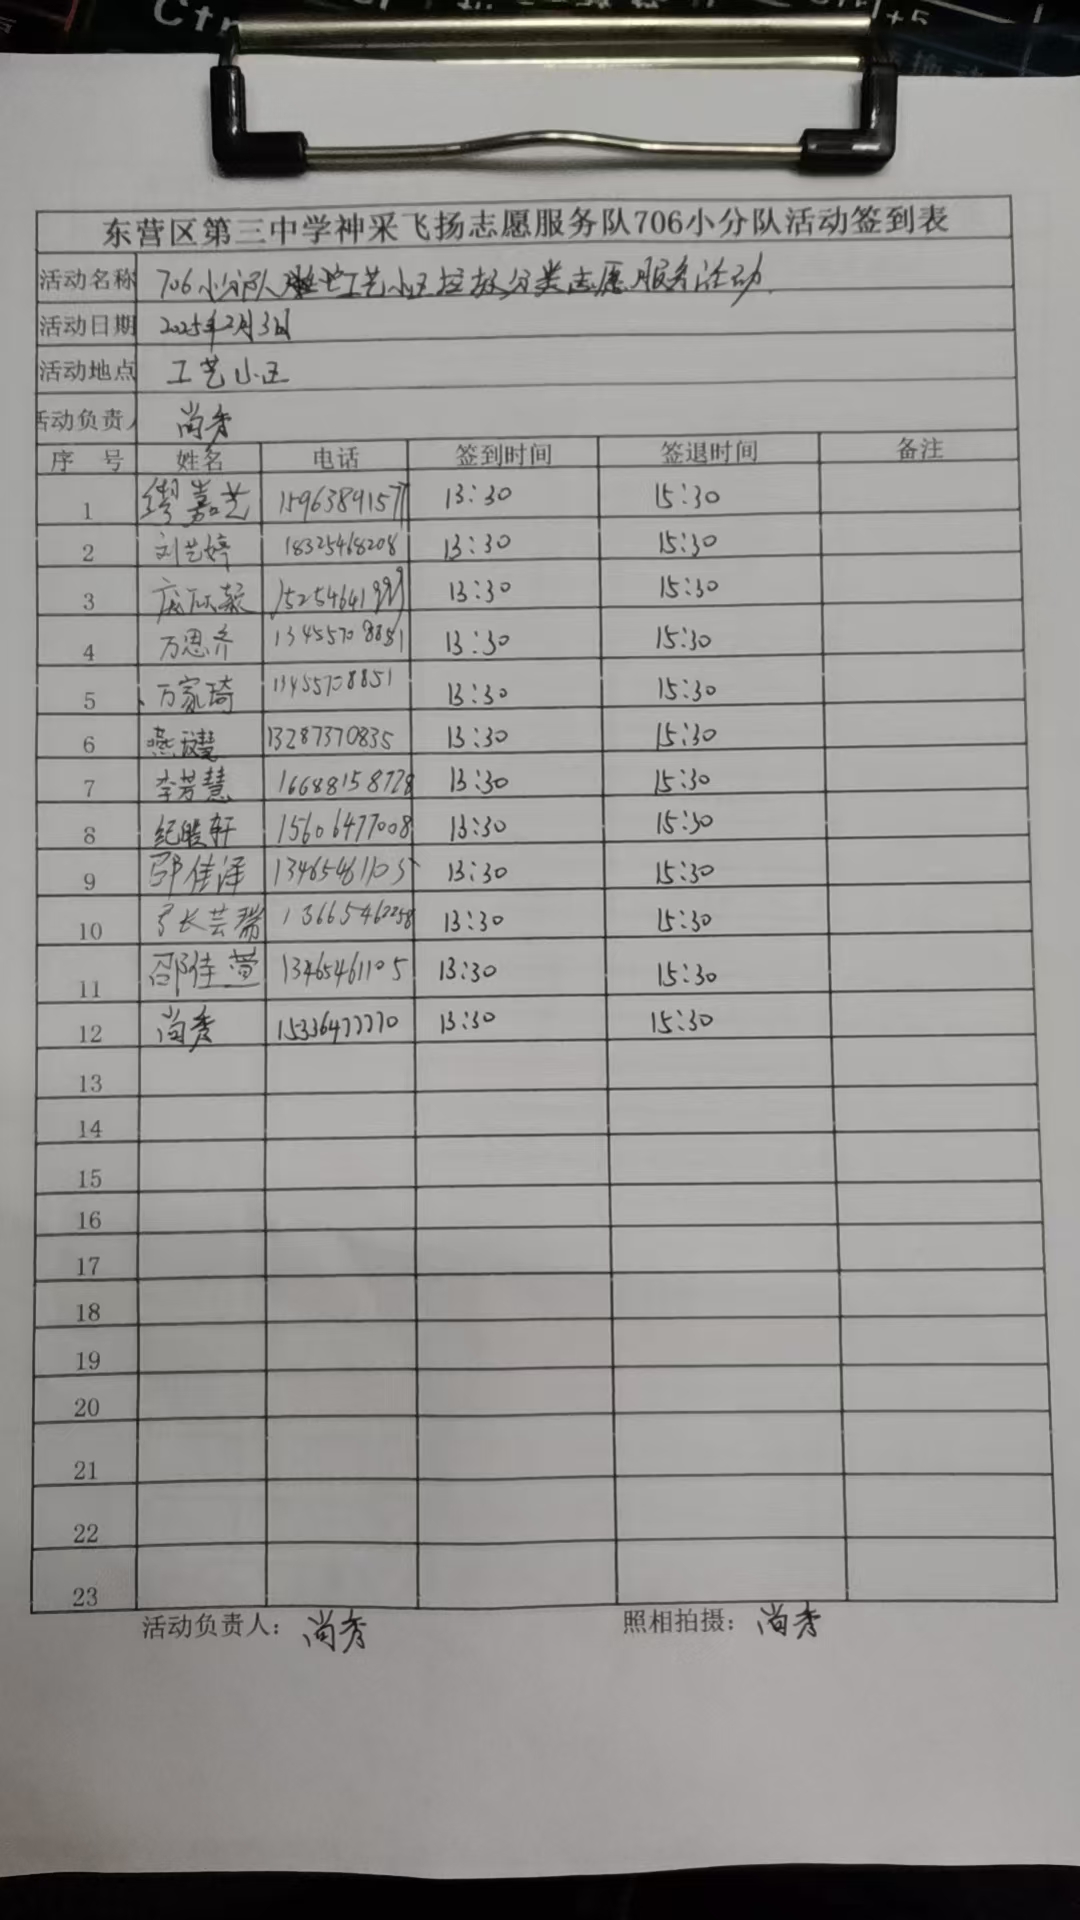 Ctr
Ctrl+5
东营区第三中学神采飞扬志愿服务队706小分队活动签到表
活动名称 706小分队 工艺小区垃圾分类志愿服务活动
活动日期 2025年2月3日
活动地点 工艺小区
活动负责人 尚秀
序 号 姓名 电话 签到时间 签退时间 备注
1 缪嘉艺 15963891577 13:30 15:30
2 刘艺婷 18325468208 13:30 15:30
3 13:30 15:30
4 万思齐 13455708851 13:30 15:30
5 万家琦 13455708851 13:30 15:30
6 13287370835 13:30 15:30
7 李芳慧 16688158728 13:30 15:30
8 纪皓轩 15606477008 13:30 15:30
9 邵佳泽 13465461105 13:30 15:30
10 张芸瑞 13665462258 13:30 15:30
11 邵佳萱 13465461105 13:30 15:30
12 尚秀 15336477770 13:30 15:30
13
14
15
16
17
18
19
20
21
22
23
活动负责人: 尚秀 照相拍摄: 尚秀